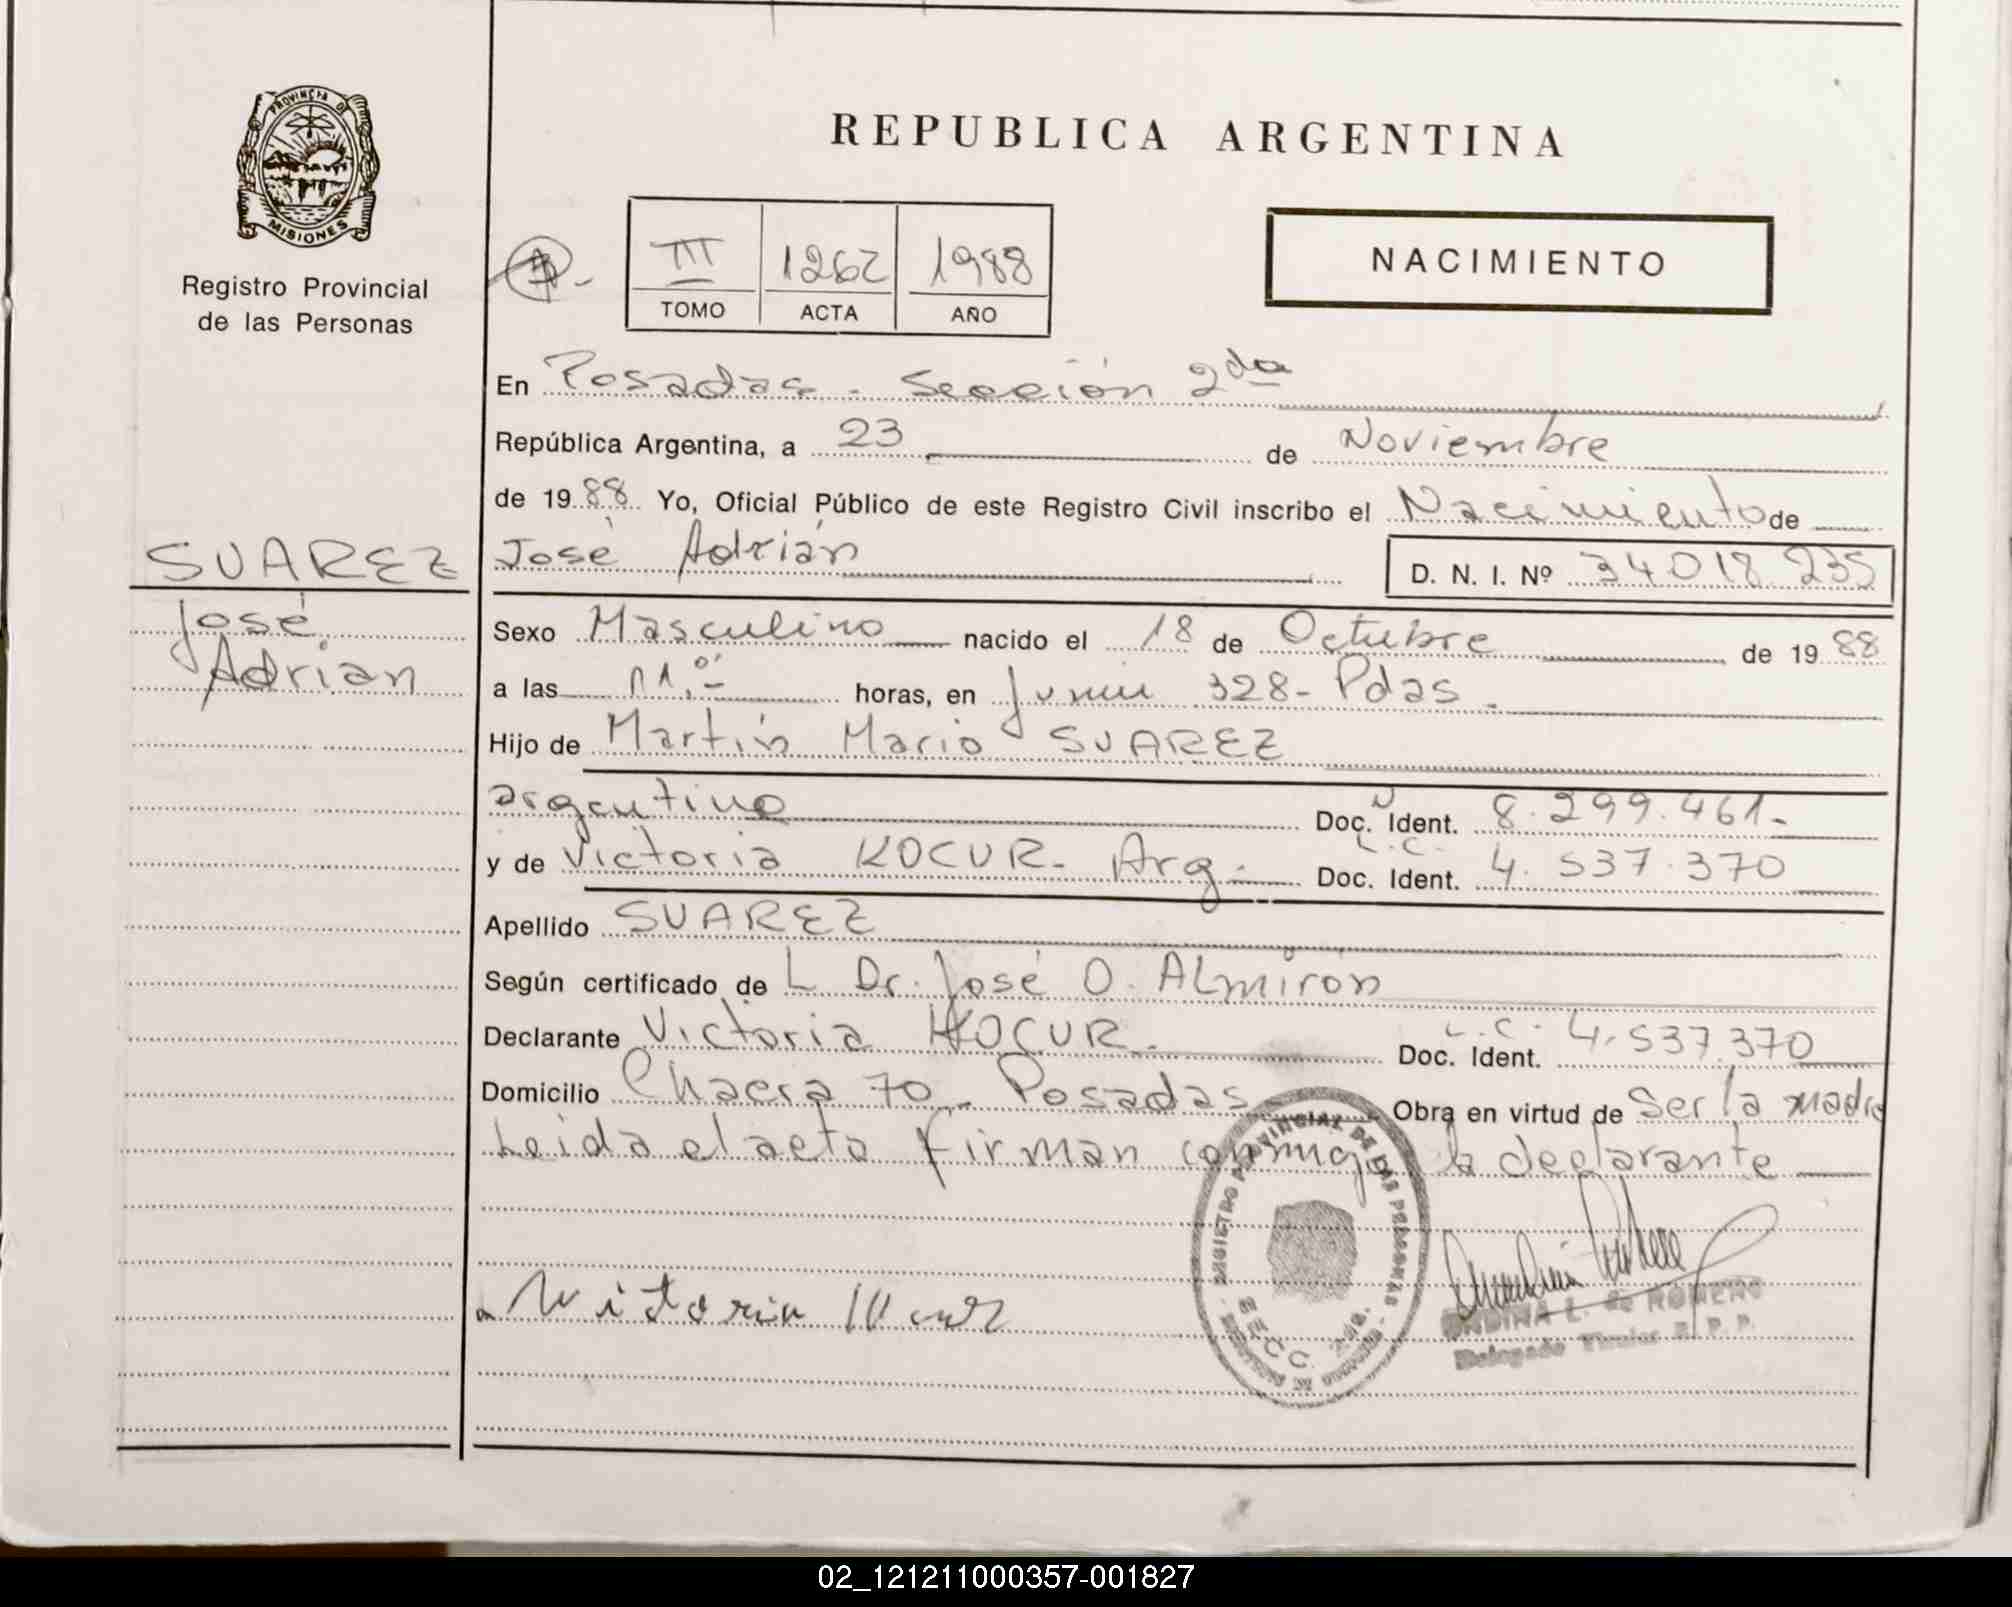 PROVINCIA DE
MISIONES
Registro Provincial
de las Personas
REPUBLICA ARGENTINA
III 1262 1988
TOMO ACTA AÑO
NACIMIENTO
En Posadas - Sección 2da
República Argentina, a 23 de Noviembre
de 1988 Yo, Oficial Público de este Registro Civil inscribo el Nacimiento de
SUAREZ
José Adrián D. N. I. Nº 34018235
José
Adrian
Sexo Masculino nacido el 18 de Octubre de 1988
a las 11,- horas, en Junin 328 - Pdas -
Hijo de Martín Mario SUAREZ
argentino Doc. Ident. 8.299.461-
y de Victoria KOCUR - Arg - L.C. Doc. Ident. 4.537.370
Apellido SUAREZ
Según certificado de L Dr. José O. Almirón
Declarante Victoria KOCUR - L.C. Doc. Ident. 4.537.370
Domicilio Chacra 70 - Posadas Obra en virtud de Ser la madre
Leida el acta firman conmigo la declarante
REGISTRO PROVINCIAL DE LAS PERSONAS
SECC. 2da.
ONDINA L. de ROMERO
Delegado Titular R. P. P.
02_121211000357-001827